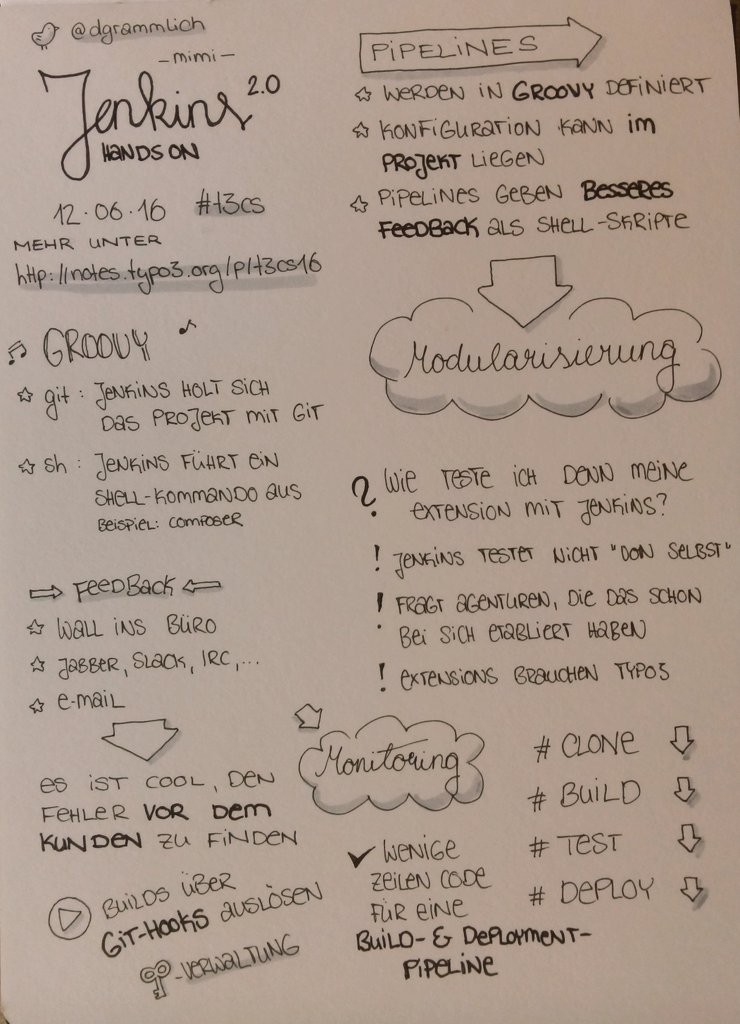 @dgrammlich
- mimi -
Jenkins 2.0
HANDS ON
12.06.16 #t3cs
MEHR UNTER
http://notes.typo3.org/p/t3cs16
GROOVY
git: JENKINS HOLT SICH
DAS PROJEKT MIT GIT
sh: JENKINS FÜHRT EIN
SHELL-KOMMANDO AUS
BEISPIEL: COMPOSER
FEEDBACK
WALL INS BÜRO
JABBER, SLACK, IRC,...
E-MAIL
ES IST COOL, DEN
FEHLER VOR DEM
KUNDEN ZU FINDEN
BUILDS ÜBER
GIT-HOOKS AUSLÖSEN
-VERWALTUNG
PIPELINES
WERDEN IN GROOVY DEFINIERT
KONFIGURATION KANN IM
PROJEKT LIEGEN
PIPELINES GEBEN BESSERES
FEEDBACK ALS SHELL-SKRIPTE
Modularisierung
? WIE TESTE ICH DENN MEINE
EXTENSION MIT JENKINS?
! JENKINS TESTET NICHT "VON SELBST"
! FRAGT AGENTUREN, DIE DAS SCHON
BEI SICH ETABLIERT HABEN
! EXTENSIONS BRAUCHEN TYPO3
Monitoring
# CLONE
# BUILD
# TEST
# DEPLOY
WENIGE
ZEILEN CODE
FÜR EINE
BUILD- & DEPLOYMENT-
PIPELINE